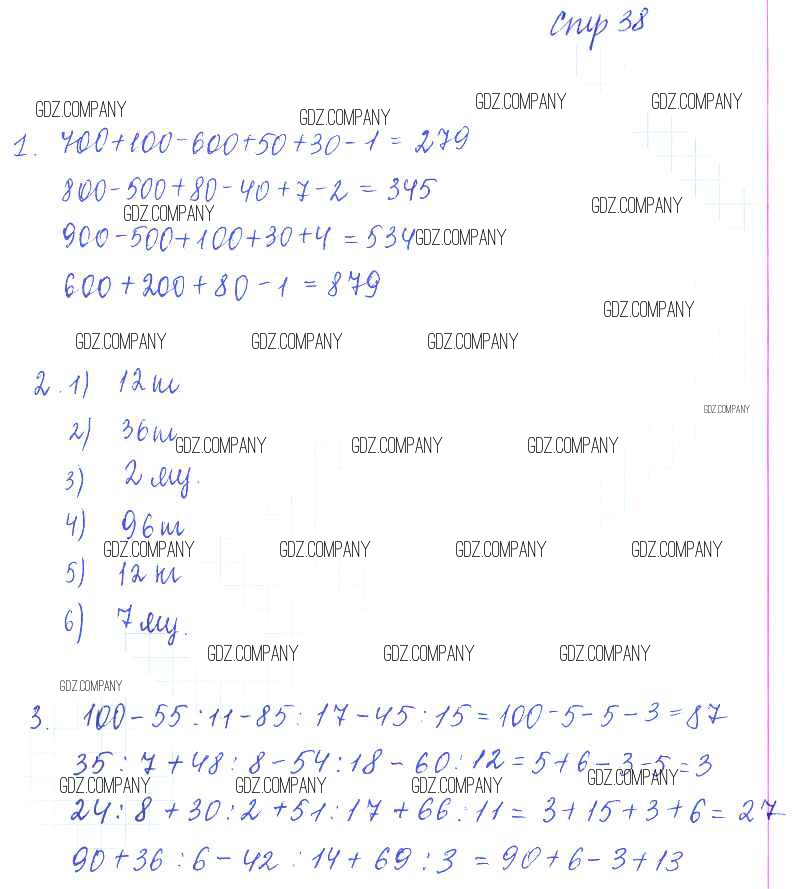 Стр 38
GDZ.COMPANY GDZ.COMPANY GDZ.COMPANY GDZ.COMPANY
1. 700+100-600+50+30-1 = 279
800-500+80-40+7-2 = 345
GDZ.COMPANY GDZ.COMPANY
900-500+100+30+4 = 534
GDZ.COMPANY
600+200+80-1 = 879
GDZ.COMPANY
GDZ.COMPANY GDZ.COMPANY GDZ.COMPANY
2. 1) 12
GDZ.COMPANY
2) 36
GDZ.COMPANY GDZ.COMPANY GDZ.COMPANY
3) 2
4) 96
GDZ.COMPANY GDZ.COMPANY GDZ.COMPANY GDZ.COMPANY
5) 12
6) 7
GDZ.COMPANY GDZ.COMPANY GDZ.COMPANY
GDZ.COMPANY
3. 100-55:11-85:17-45:15=100-5-5-3=87
35:7+48:8-54:18-60:12=5+6-3-5=3
GDZ.COMPANY GDZ.COMPANY GDZ.COMPANY GDZ.COMPANY
24:8+30:2+51:17+66:11= 3+15+3+6= 27
90+36:6-42:14+69:3 = 90+6-3+13